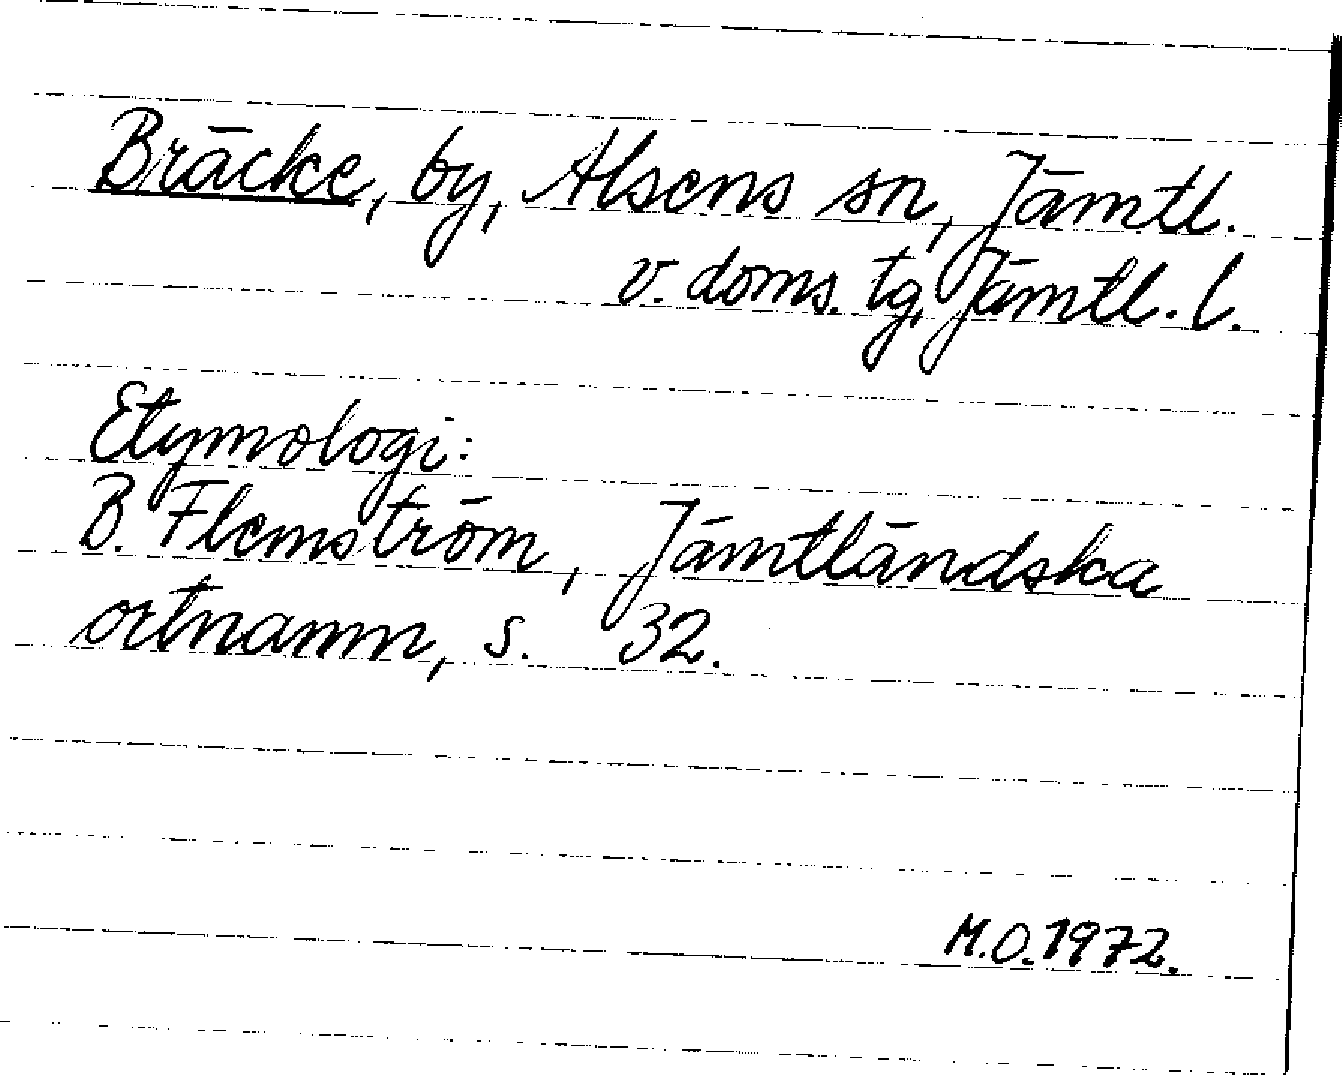 Bräcke, by, Alsens sn, Jämtl.
v. doms. tg, Jämtl. l.
Etymologi:
B. Flemström, Jämtländska
ortnamn, s. 32.
M.O. 1972.